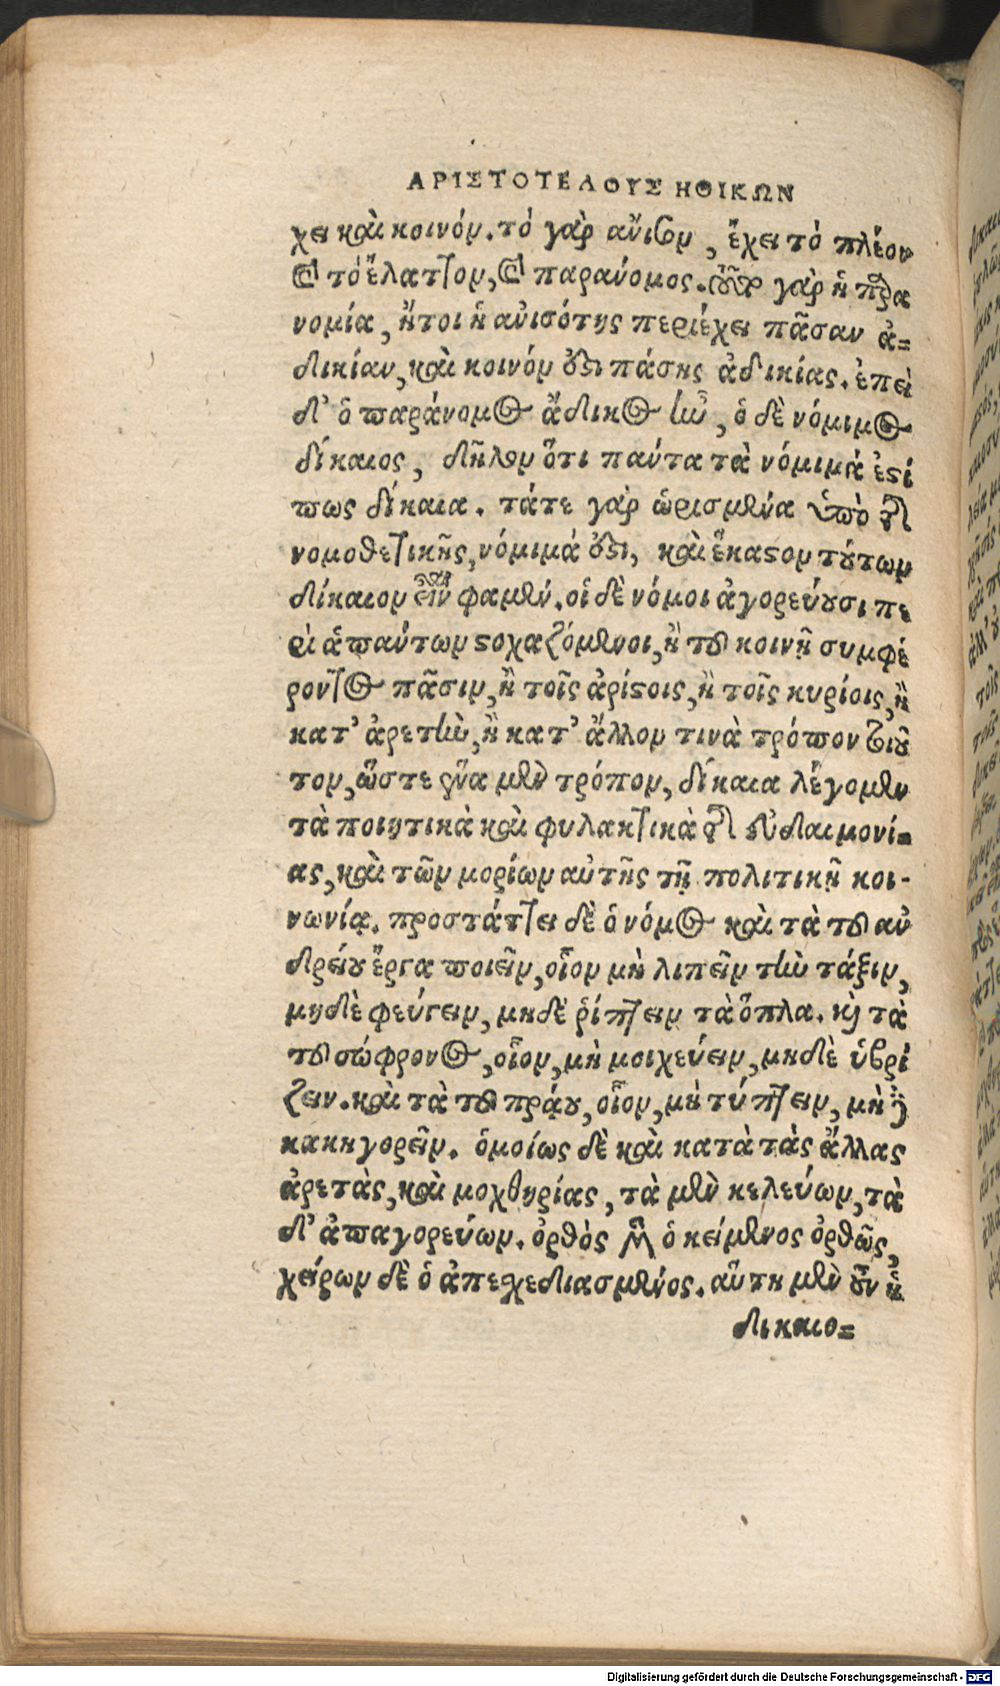 ΑΡΙΣΤΟΤΕΛΟΥΣ ΗΘΙΚΩΝ
χει καὶ κοινόν. τὸ γὰρ ἄνισον, ἔχει τὸ πλέον
καὶ τὸ ἔλαττον, καὶ παράνομος. αὕτη γὰρ ἡ παρα
νομία, ἤτοι ἡ ἀνισότης περιέχει πᾶσαν ἀ-
δικίαν, καὶ κοινόν ἐστι πάσης ἀδικίας. ἐπεὶ
δ' ὁ παράνομος ἄδικος ἦν, ὁ δὲ νόμιμος
δίκαιος, δῆλον ὅτι πάντα τὰ νόμιμά ἐστί
πως δίκαια. τάτε γὰρ ὡρισμένα ὑπὸ τῆς
νομοθετικῆς, νόμιμά ἐστι, καὶ ἕκαστον τούτων
δίκαιον εἶναι φαμέν. οἱ δὲ νόμοι ἀγορεύουσι πε
ρὶ ἁπάντων στοχαζόμενοι, ἢ τοῦ κοινῇ συμφέ
ροντος πᾶσιν, ἢ τοῖς ἀρίστοις, ἢ τοῖς κυρίοις, ἢ
κατ' ἀρετὴν, ἢ κατ' ἄλλον τινὰ τρόπον τοιοῦ
τον, ὥστε ἕνα μὲν τρόπον, δίκαια λέγομεν
τὰ ποιητικὰ καὶ φυλακτικὰ τῆς εὐδαιμονί-
ας, καὶ τῶν μορίων αὐτῆς τῇ πολιτικῇ κοι-
νωνίᾳ. προστάττει δὲ ὁ νόμος καὶ τὰ τοῦ ἀν
δρείου ἔργα ποιεῖν, οἷον μὴ λιπεῖν τὴν τάξιν,
μηδὲ φεύγειν, μηδὲ ῥίπτειν τὰ ὅπλα. καὶ τὰ
τοῦ σώφρονος, οἷον, μὴ μοιχεύειν, μηδὲ ὑβρί
ζειν. καὶ τὰ τοῦ πράου, οἷον, μὴ τύπτειν, μὴ δὲ
κακηγορεῖν. ὁμοίως δὲ καὶ κατὰ τὰς ἄλλας
ἀρετὰς, καὶ μοχθηρίας, τὰ μὲν κελεύων, τὰ
δ' ἀπαγορεύων. ὀρθὸς μὲν ὁ κείμενος ὀρθῶς,
χείρων δὲ ὁ ἀπεσχεδιασμένος. αὕτη μὲν οὖν ἡ
δικαιο-
Digitalisierung gefördert durch die Deutsche Forschungsgemeinschaft - DFG